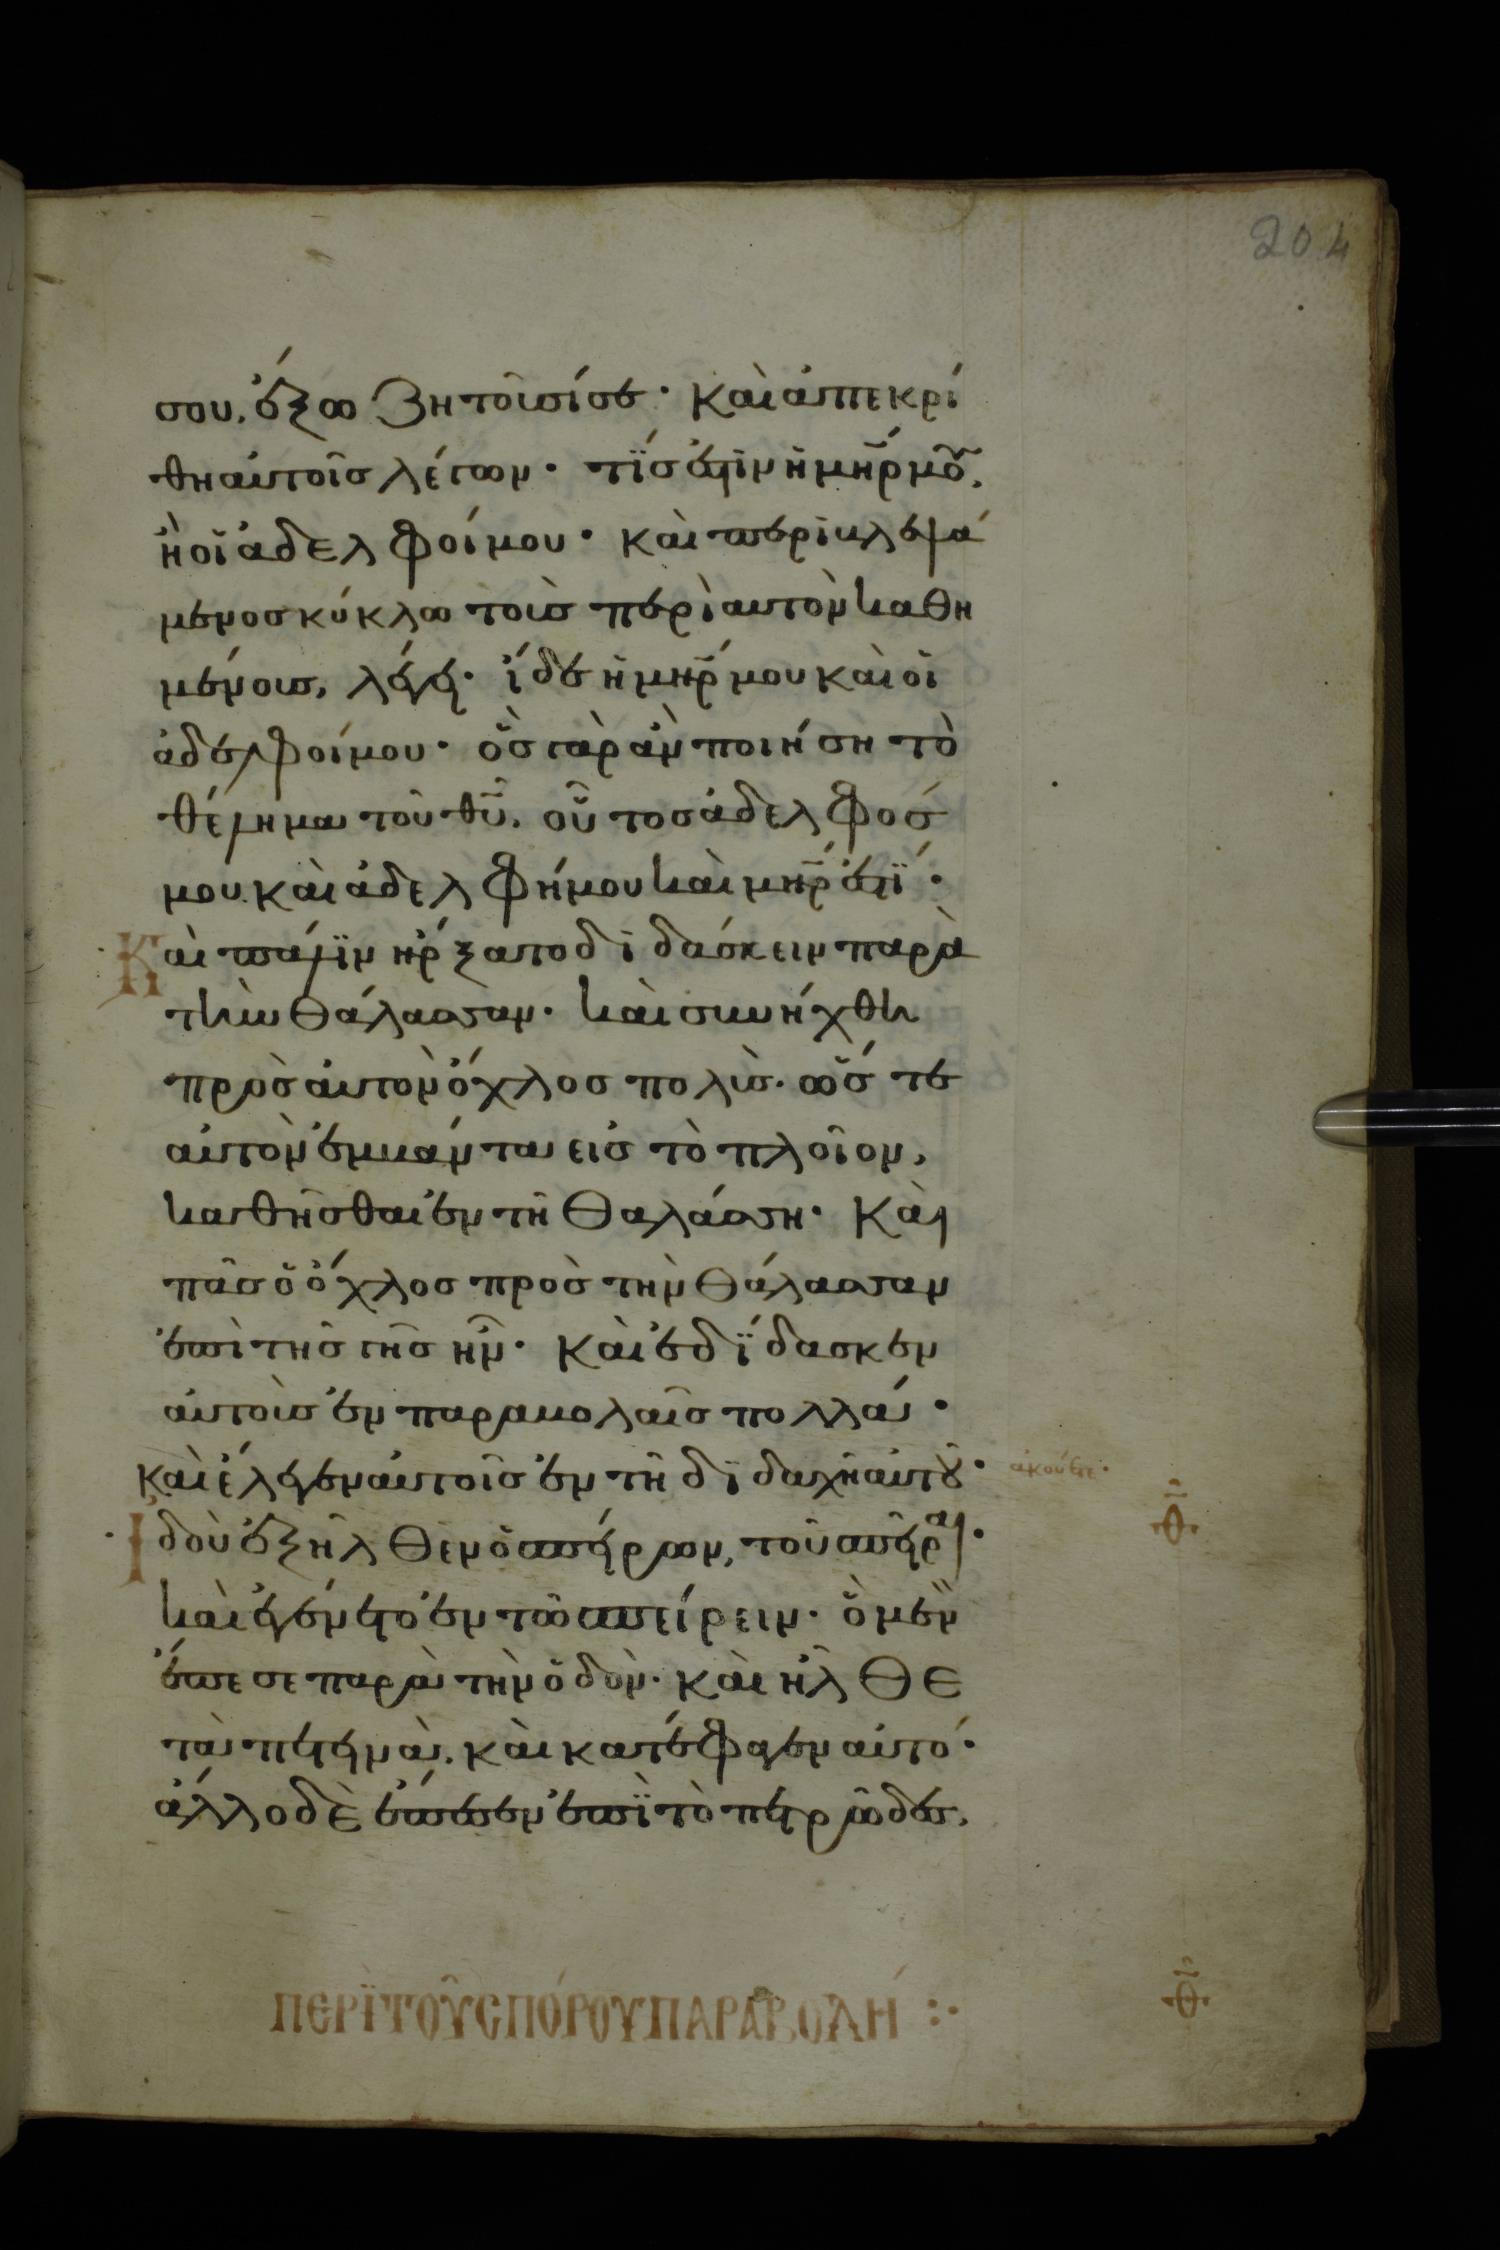 204
σου. ἔξω ζητοῦσί σε· καὶ ἀπεκρί
θη αὐτοῖς λέγων· τίς ἐστιν ἡ μηρ μου,
ἢ οἱ ἀδελφοί μου· καὶ περιβλεψά
μενος κύκλω τοὺς περὶ αὐτὸν καθη
μένους, λέγει· ἴδε ἡ μηρ μου καὶ οἱ
ἀδελφοί μου· ὃς γὰρ ἂν ποιήση τὸ
θέλημα τοῦ θυ. οὗτος ἀδελφός
μου καὶ ἀδελφή μου καὶ μηρ ἐστί·
Καὶ πάλιν ἤρξατο διδάσκειν παρὰ
τὴν θάλασσαν· καὶ συνήχθη
πρὸς αὐτὸν ὄχλος πολὺς. ὥστε
αὐτὸν ἐμβάντα εἰς τὸ πλοῖον,
καθῆσθαι ἐν τῆ θαλάσση· καὶ
πᾶς ὁ ὄχλος πρὸς τὴν θάλασσαν
ἐπὶ τῆς γῆς ἦν· καὶ ἐδίδασκεν
αὐτοὺς ἐν παραβολαῖς πολλά·
καὶ ἔλεγεν αὐτοῖς ἐν τῆ διδαχῆ αὐτοῦ· ἀκούετε·
Ἰδοὺ ἐξῆλθεν ὁ σπείρων, τοῦ σπεῖραι·
καὶ ἐγένετο ἐν τῶ σπείρειν· ὃ μὲν
ἔπεσε παρὰ τὴν ὁδὸν· καὶ ἦλθε
τὰ πετεινὰ. καὶ κατέφαγεν αὐτό·
ἄλλο δὲ ἔπεσεν ἐπὶ τὸ πετρῶδες.
ΠΕΡῚ ΤΟῦ ΣΠΌΡΟΥ ΠΑΡΑΒΟΛΉ :·